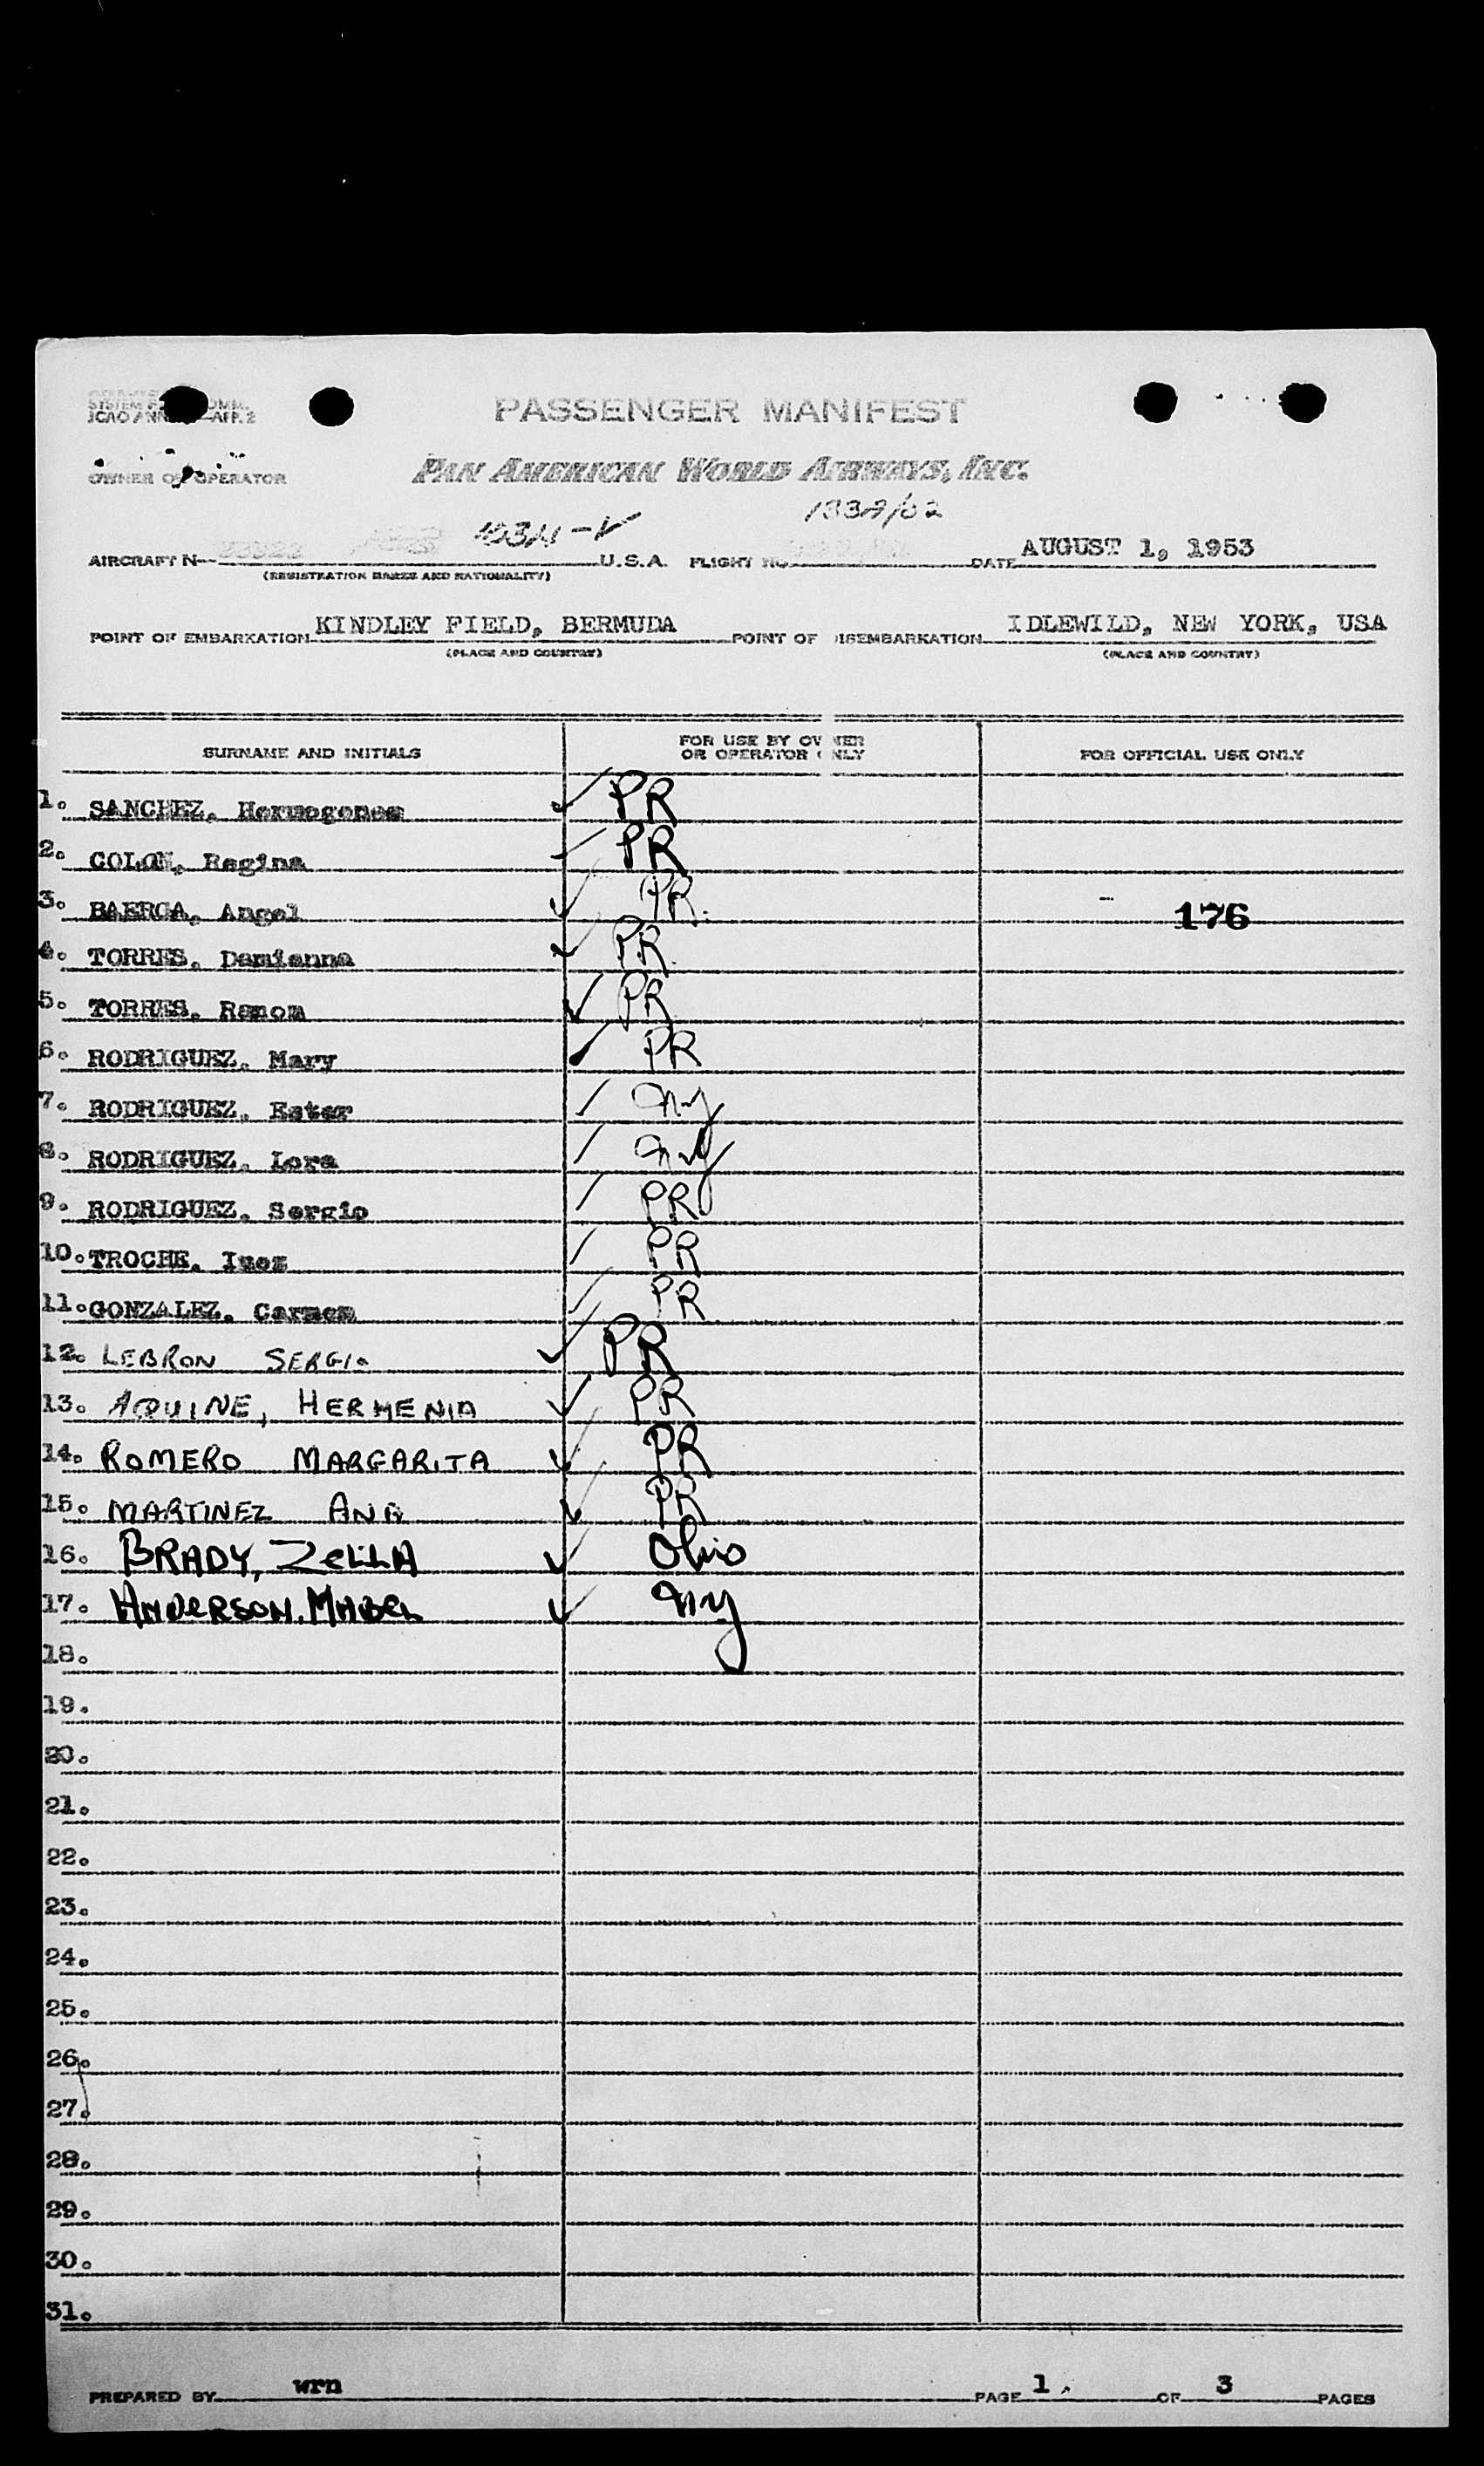 PASSENGER MANIFEST
OWNER OR OPERATOR PAN AMERICAN WORLD AIRWAYS, INC.
AIRCRAFT N U.S.A. FLIGHT NO. DATE AUGUST 1, 1953
(REGISTRATION MARKS AND NATIONALITY)
POINT OF EMBARKATION KINDLEY FIELD, BERMUDA POINT OF DISEMBARKATION IDLEWILD, NEW YORK, USA
(PLACE AND COUNTRY) (PLACE AND COUNTRY)
SURNAME AND INITIALS FOR USE BY OWNER OR OPERATOR ONLY FOR OFFICIAL USE ONLY
1. SANCHEZ, Hermogenes PR
2. COLON, Regina PR
3. BAERGA, Angel PR. 176
4. TORRES, Damianna PR.
5. TORRES, Ramon PR
6. RODRIGUEZ, Mary PR
7. RODRIGUEZ, Ester NY
8. RODRIGUEZ, Lora NY
9. RODRIGUEZ, Sergio PR
10. TROCHE, Inez PR
11. GONZALEZ, Carmen PR
12. LEBRON SERGIO PR
13. AQUINE, HERMENIA PR
14. ROMERO MARGARITA PR
15. MARTINEZ ANA PR
16. BRADY, ZELLA Ohio
17. ANDERSON, MABEL NY
18.
19.
20.
21.
22.
23.
24.
25.
26.
27.
28.
29.
30.
31.
PREPARED BY wrn PAGE 1 OF 3 PAGES